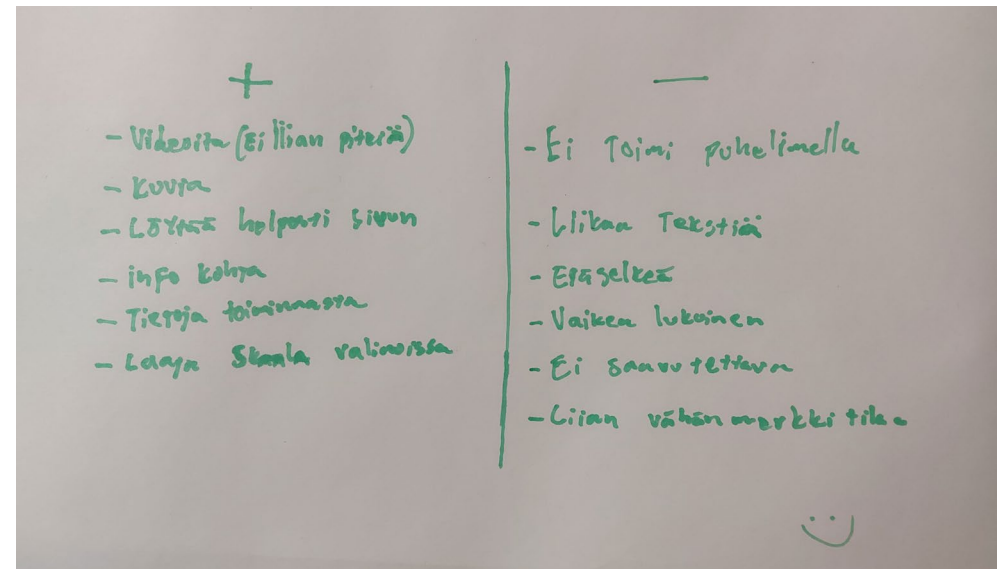 +
- Videoita (Ei liian pitkiä)
- Kuvia
- Löytää helposti sivun
- info kohta
- Tietoja toiminnasta
- Laaja Skaala valinoissa
—
- Ei Toimi puhelimella
- Liikaa Tekstiä
- Epäselkeä
- Vaikea lukoinen
- Ei saavutettava
- Liian vähän merkki tilaa